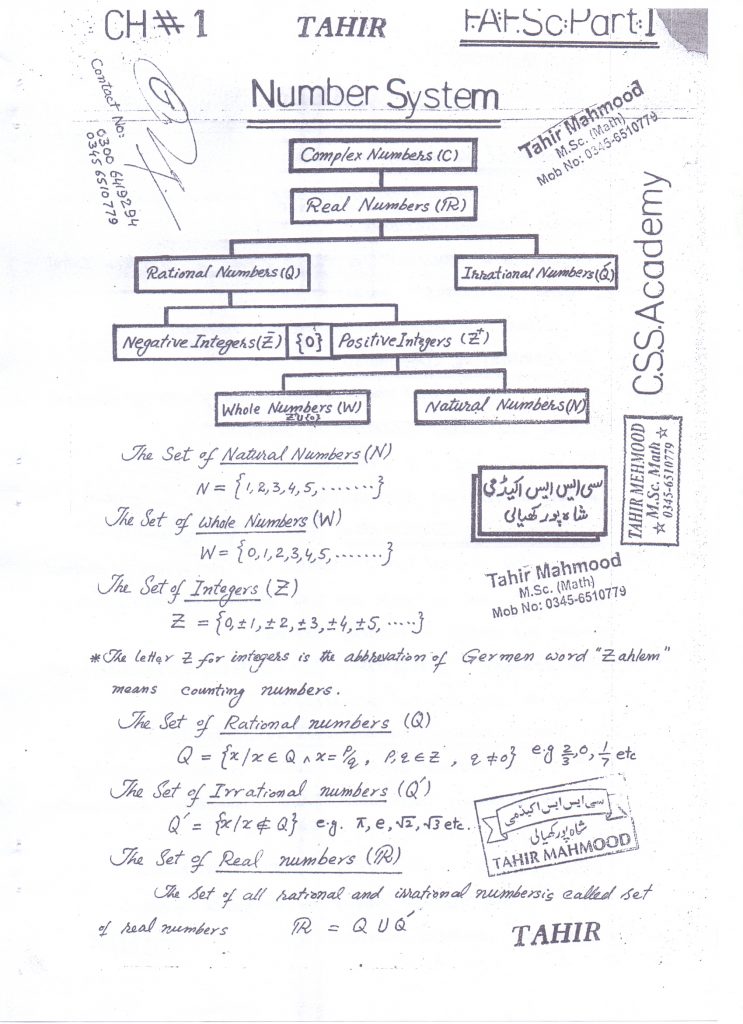 CH # 1
TAHIR
F.A F.Sc: Part: 1
Contact No:
0300 6419294
0345 6510779
Number System
Tahir Mahmood
M.Sc. (Math)
Mob No: 0345-6510779
Complex Numbers (C)
Real Numbers (ℝ)
Rational Numbers (Q)
Irrational Numbers (Q́)
Negative Integers (Z̄)
{0}
Positive Integers (Z⁺)
Whole Numbers (W)
Z U {0}
Natural Numbers (N)
C.S.S. Academy
The Set of Natural Numbers (N)
N = {1, 2, 3, 4, 5, ........}
سی ایس ایس اکیڈمی
شاہ پور کھیالی
TAHIR MEHMOOD
☆ M.Sc. Math ☆
☆ 0345-6510779 ☆
The Set of Whole Numbers (W)
W = {0, 1, 2, 3, 4, 5, .......}
Tahir Mahmood
M.Sc. (Math)
Mob No: 0345-6510779
The Set of Integers (Z)
Z = {0, ±1, ±2, ±3, ±4, ±5, .....}
*The letter Z for integers is the abbrevation of Germen word "Zahlem"
means counting numbers.
The Set of Rational numbers (Q)
Q = {x/x ∈ Q ∧ x = p/q , p, q ∈ Z , q ≠ 0} e.g 2/3, 0, 1/7 etc
The Set of Irrational numbers (Q′)
Q′ = {x/x ∉ Q} e.g. π, e, √2, √3 etc.
سی ایس ایس اکیڈمی
شاہ پور کھیالی
TAHIR MAHMOOD
The Set of Real numbers (ℝ)
The set of all rational and irrational numbers is called set
of real numbers ℝ = Q U Q′
TAHIR